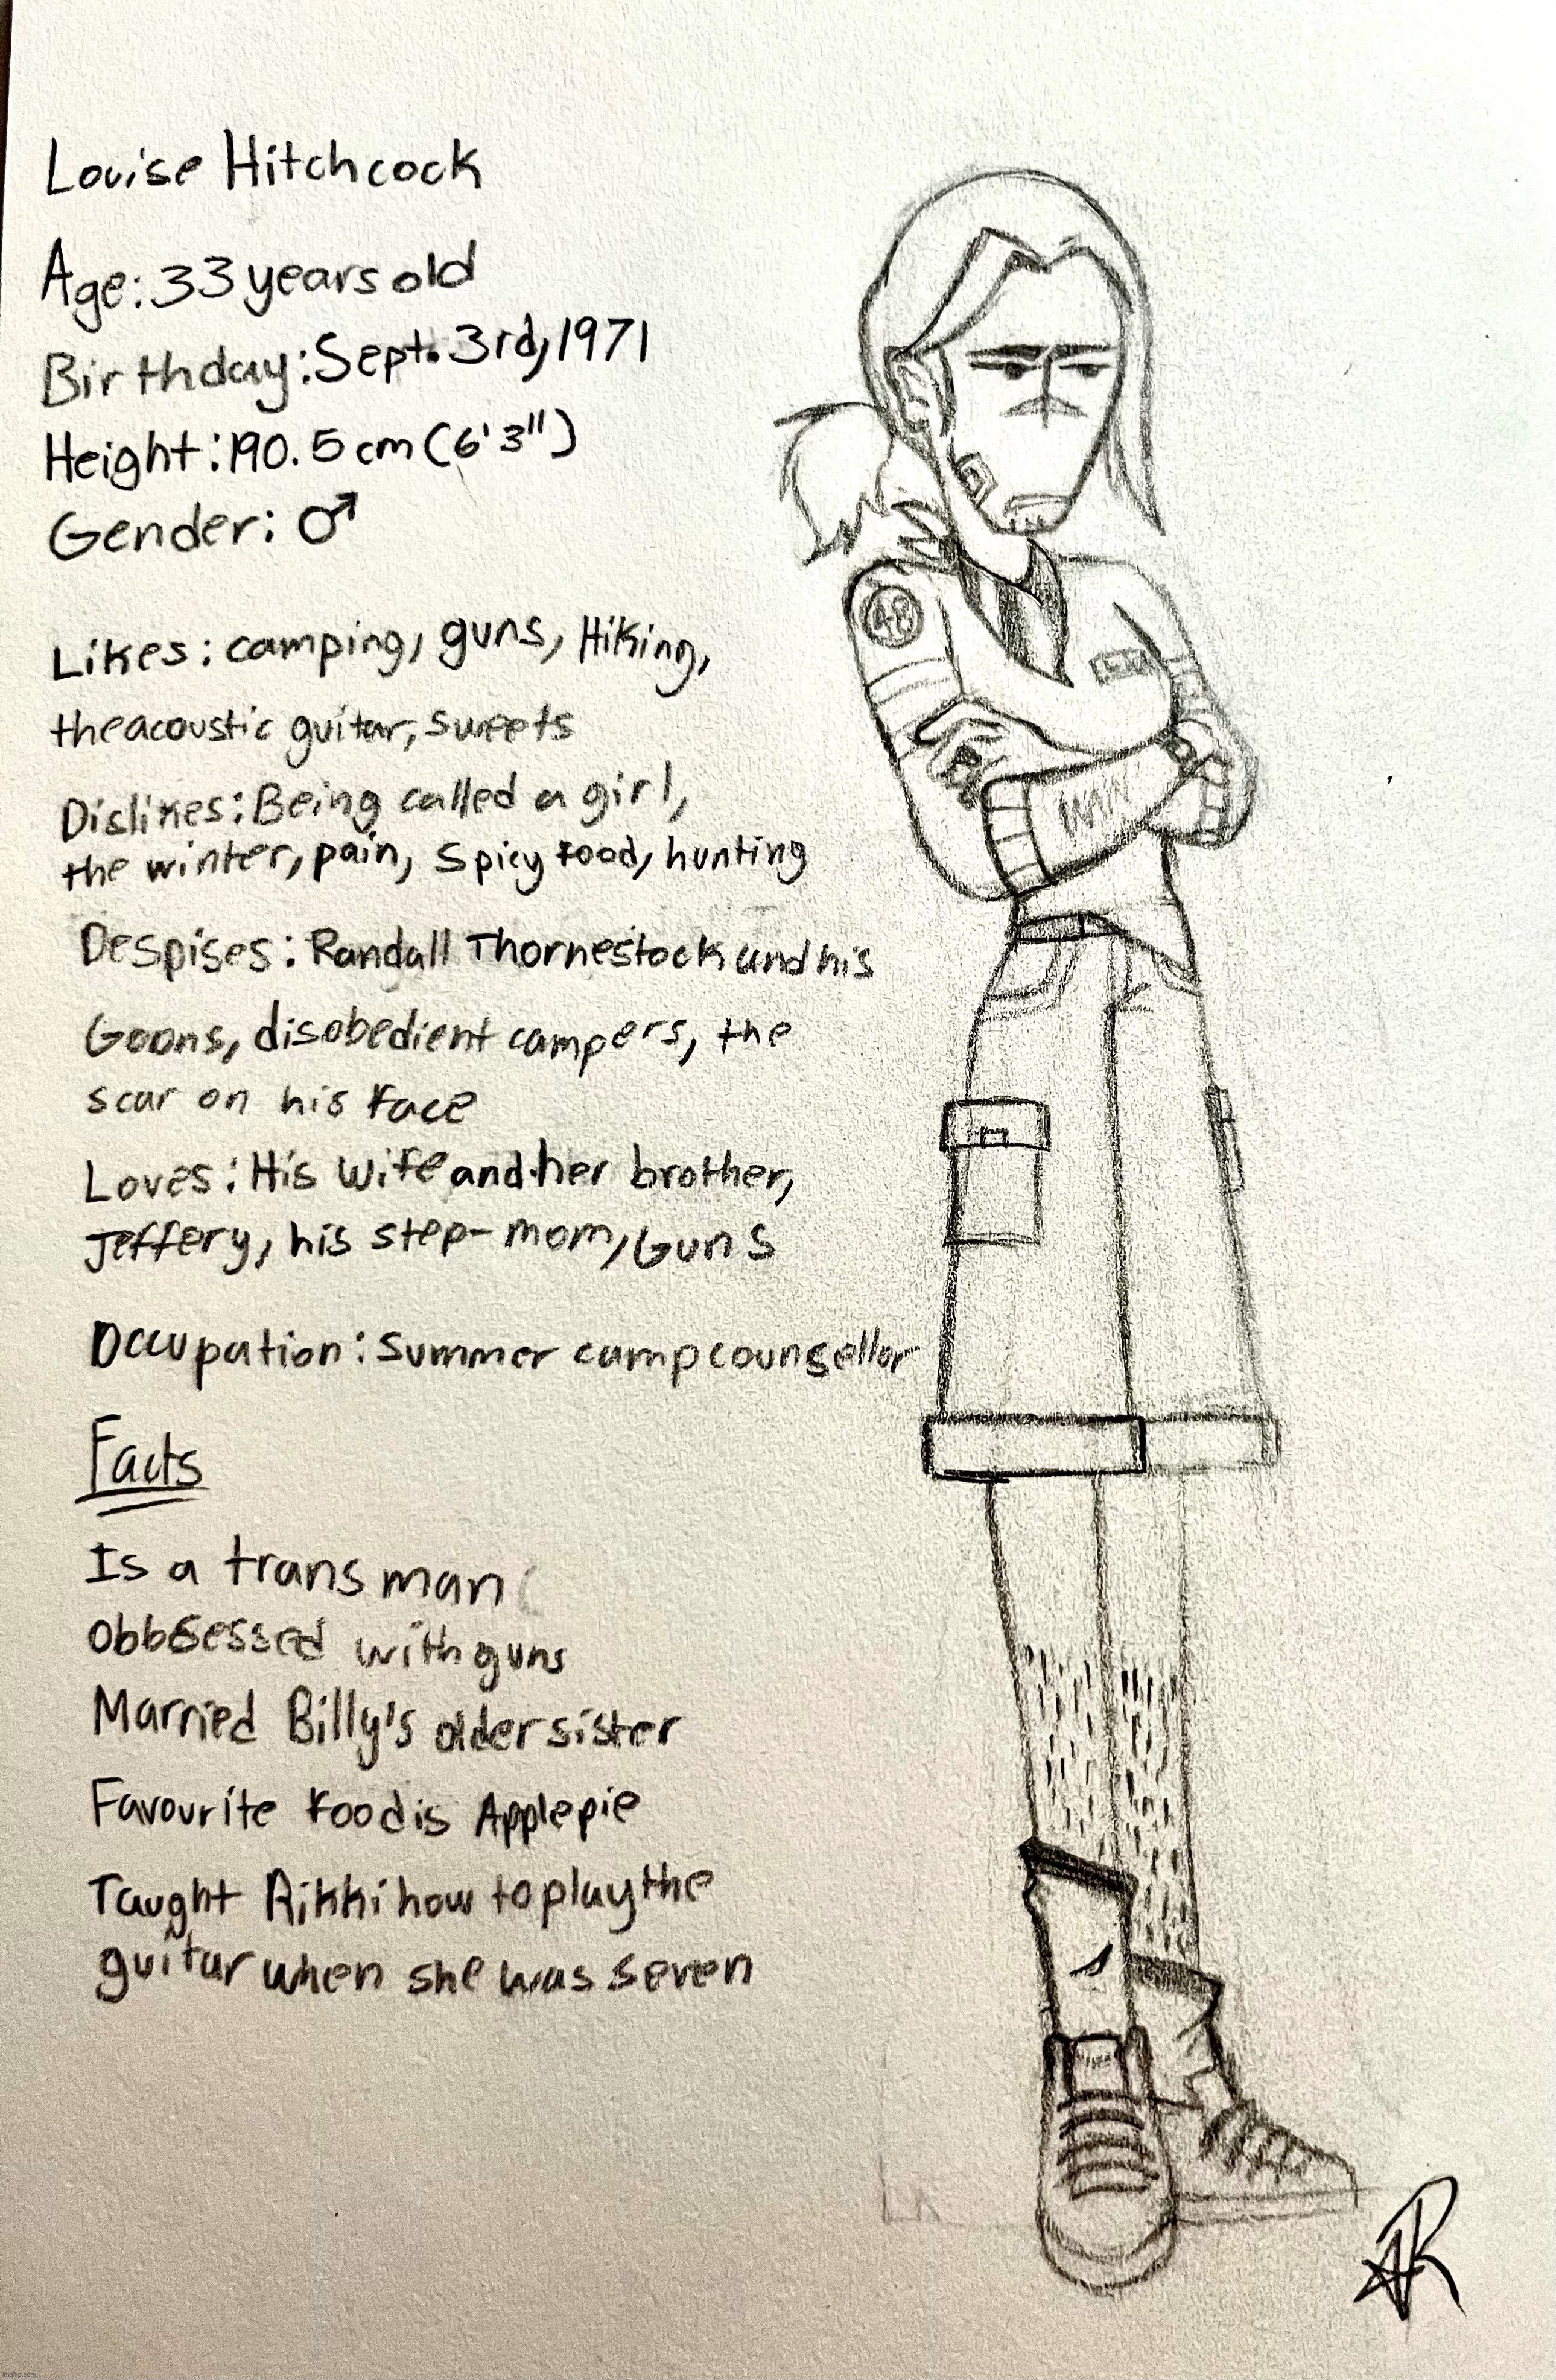 Louise Hitchcock
Age: 33 years old
Birthday: Sept. 3rd, 1971
Height: 190.5 cm (6'3")
Gender: ♂
Likes: camping, guns, Hiking,
the acoustic guitar, sweets
Dislikes: Being called a girl,
the winter, pain, spicy food, hunting
Despises: Randall Thornestock and his
Goons, disobedient campers, the
scar on his face
Loves: His wife and her brother,
Jeffery, his step-mom, Guns
Occupation: summer camp counsellor
Facts
Is a trans man
Obbsessed with guns
Married Billy's older sister
Favourite food is Apple pie
Taught Rikki how to play the
guitar when she was seven
48
AR
imgflip.com